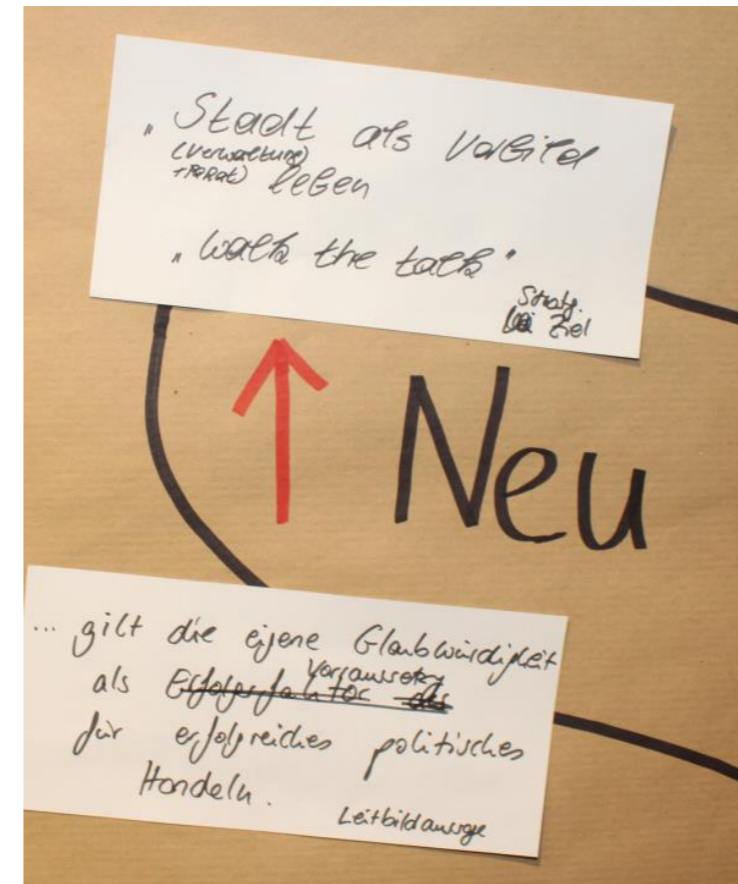 „Stadt als Vorbild
(Verwaltung)
+Rat) leben
„walk the talk"
Strateg.
Ziel
Neu
... gilt die eigene Glaubwürdigkeit
Vorraussetzg
als Erfolgsfaktor als
für erfolgreiches politisches
Handeln.
Leitbildaussage